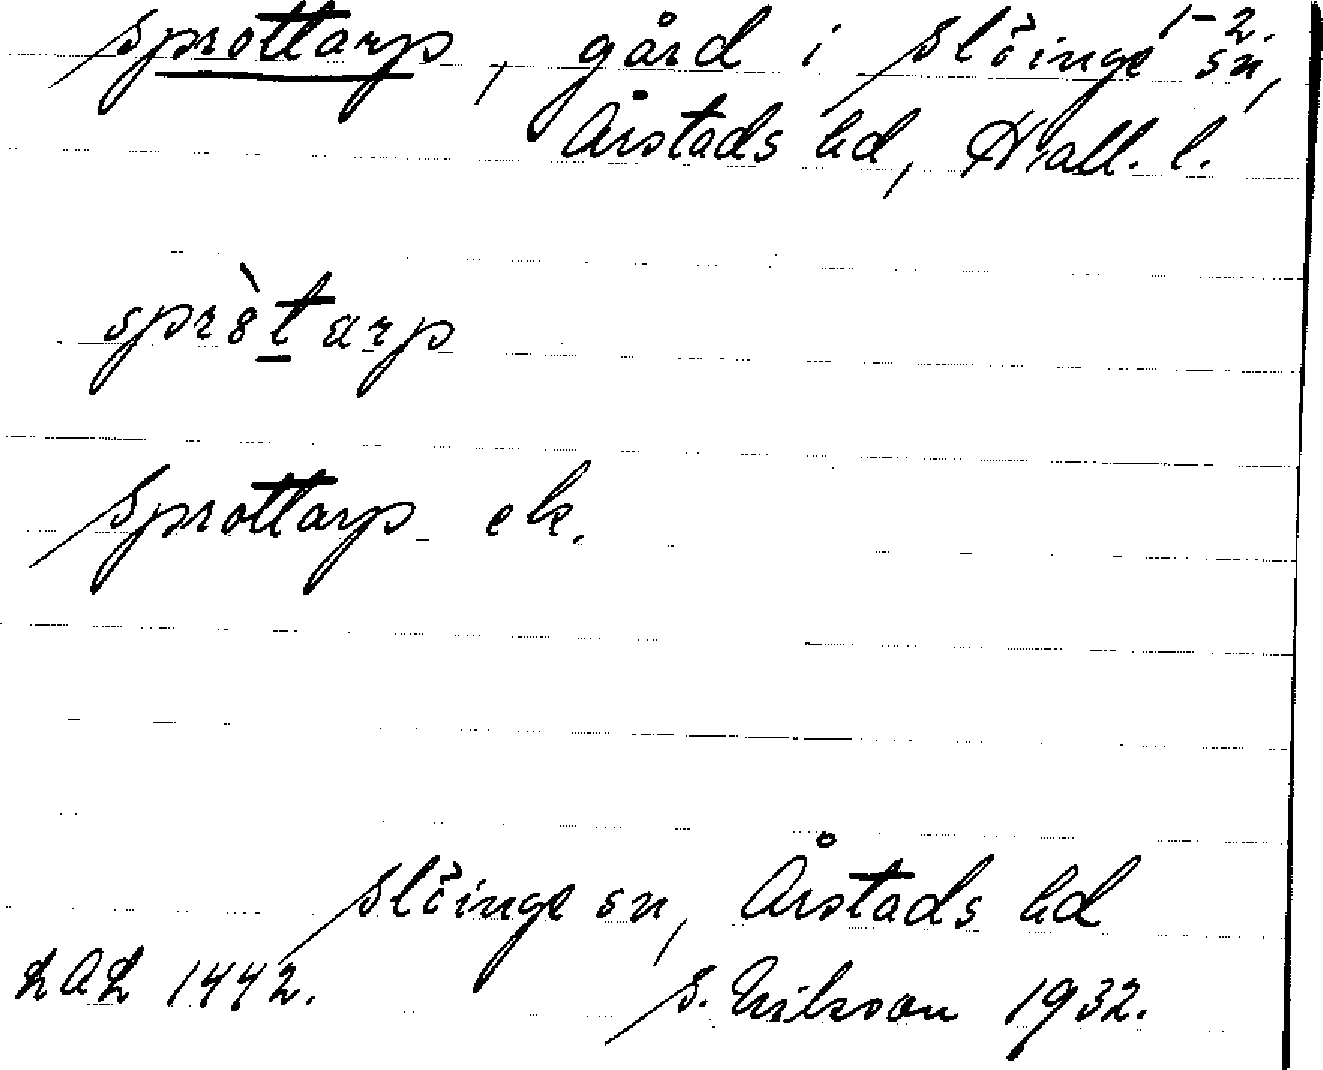 Sprottarp, gård i Slöinge sn, 1-2.
Årstads hd, Hall. l.
spròtarp
Sprottarp ek.
Slöinge sn, Årstads hd
LAL 1442. S. Erikson 1932.